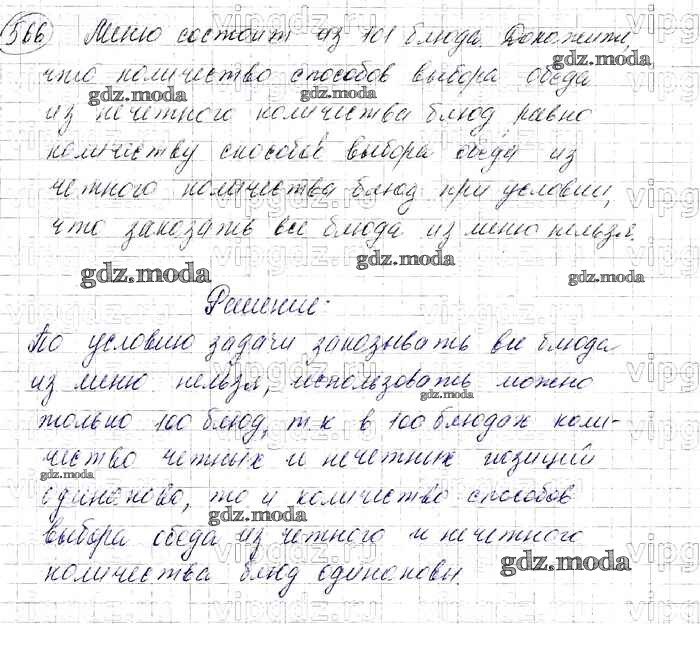 566 Меню состоит из 101 блюда. Докажите,
gdz.moda
что количество способов выбора обеда
gdz.moda gdz.moda
из нечетного количества блюд равно
количеству способов выбора обеда из
четного количества блюд при условии,
что заказать все блюда из меню нельзя.
gdz.moda gdz.moda gdz.moda
Решение:
По условию задачи заказывать все блюда
из меню нельзя, использовать можно
gdz.moda
только 100 блюд, т.к в 100 блюдах коли-
чество четных и нечетных позиций
gdz.moda
одинаково, то и количество способов
gdz.moda
выбора обеда из четного и нечетного
gdz.moda
количества блюд одинаковы